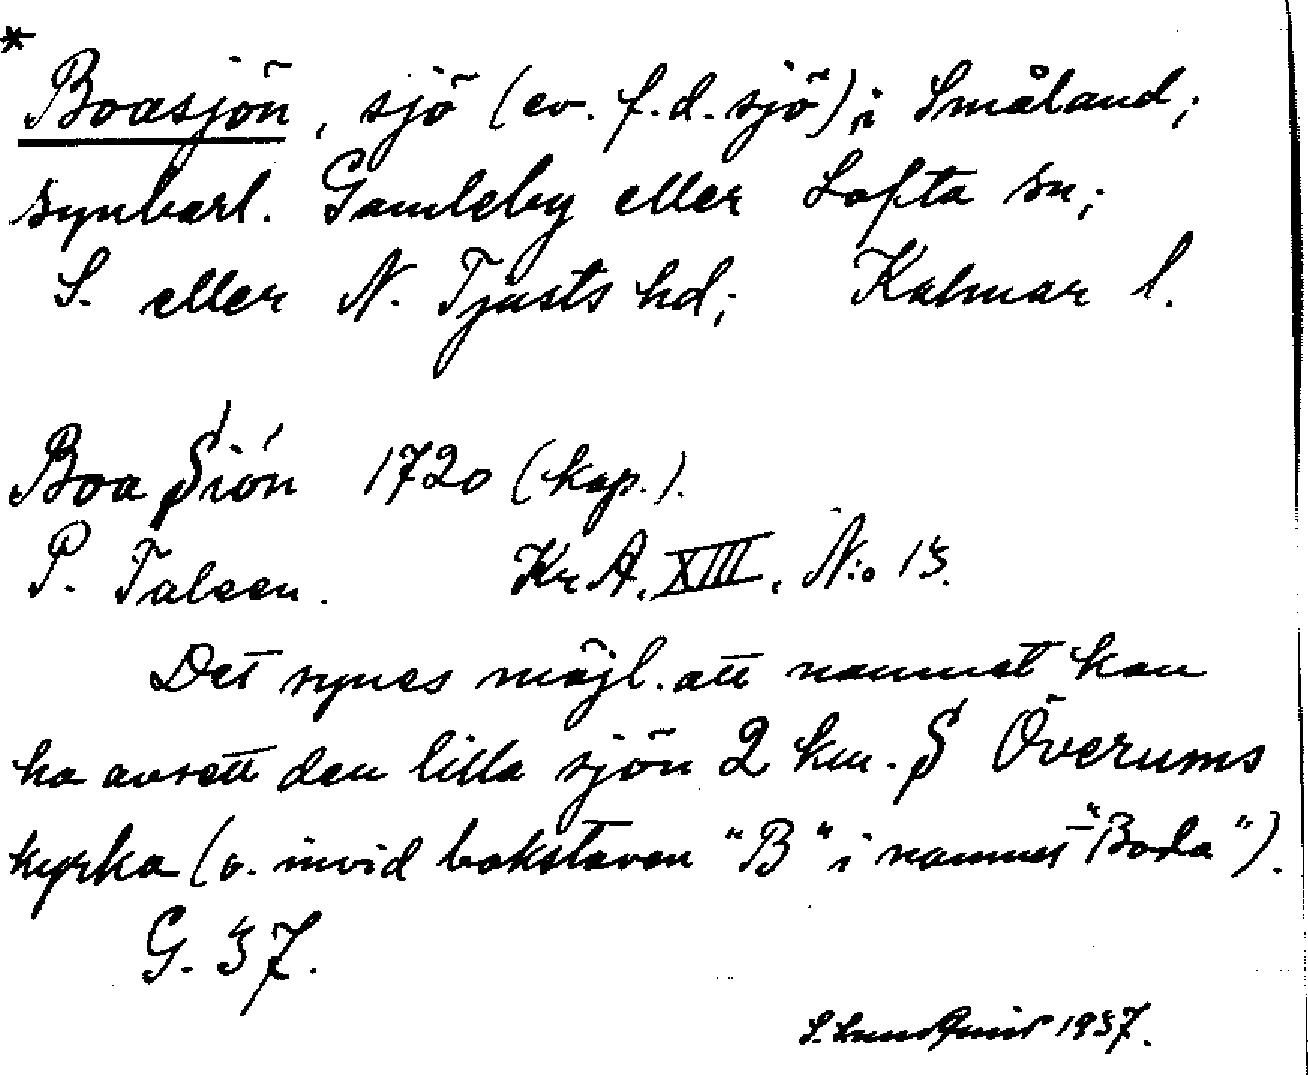 *
Boasjön, sjö (ev. f.d. sjö); i Småland;
synbarl. Gamleby eller Lofta sn;
S. eller N. Tjusts hd; Kalmar l.
Boa Siön 1720 (kop.).
P. Falsen. Kr.A. XIII. N:o 13.
Det synes möjl. att namnet kan
ha avsett den lilla sjön 2 km. S Överums
kyrka (v. invid bokstaven "B" i namnet "Boda").
G. 37.
S. Lundquist 1937.